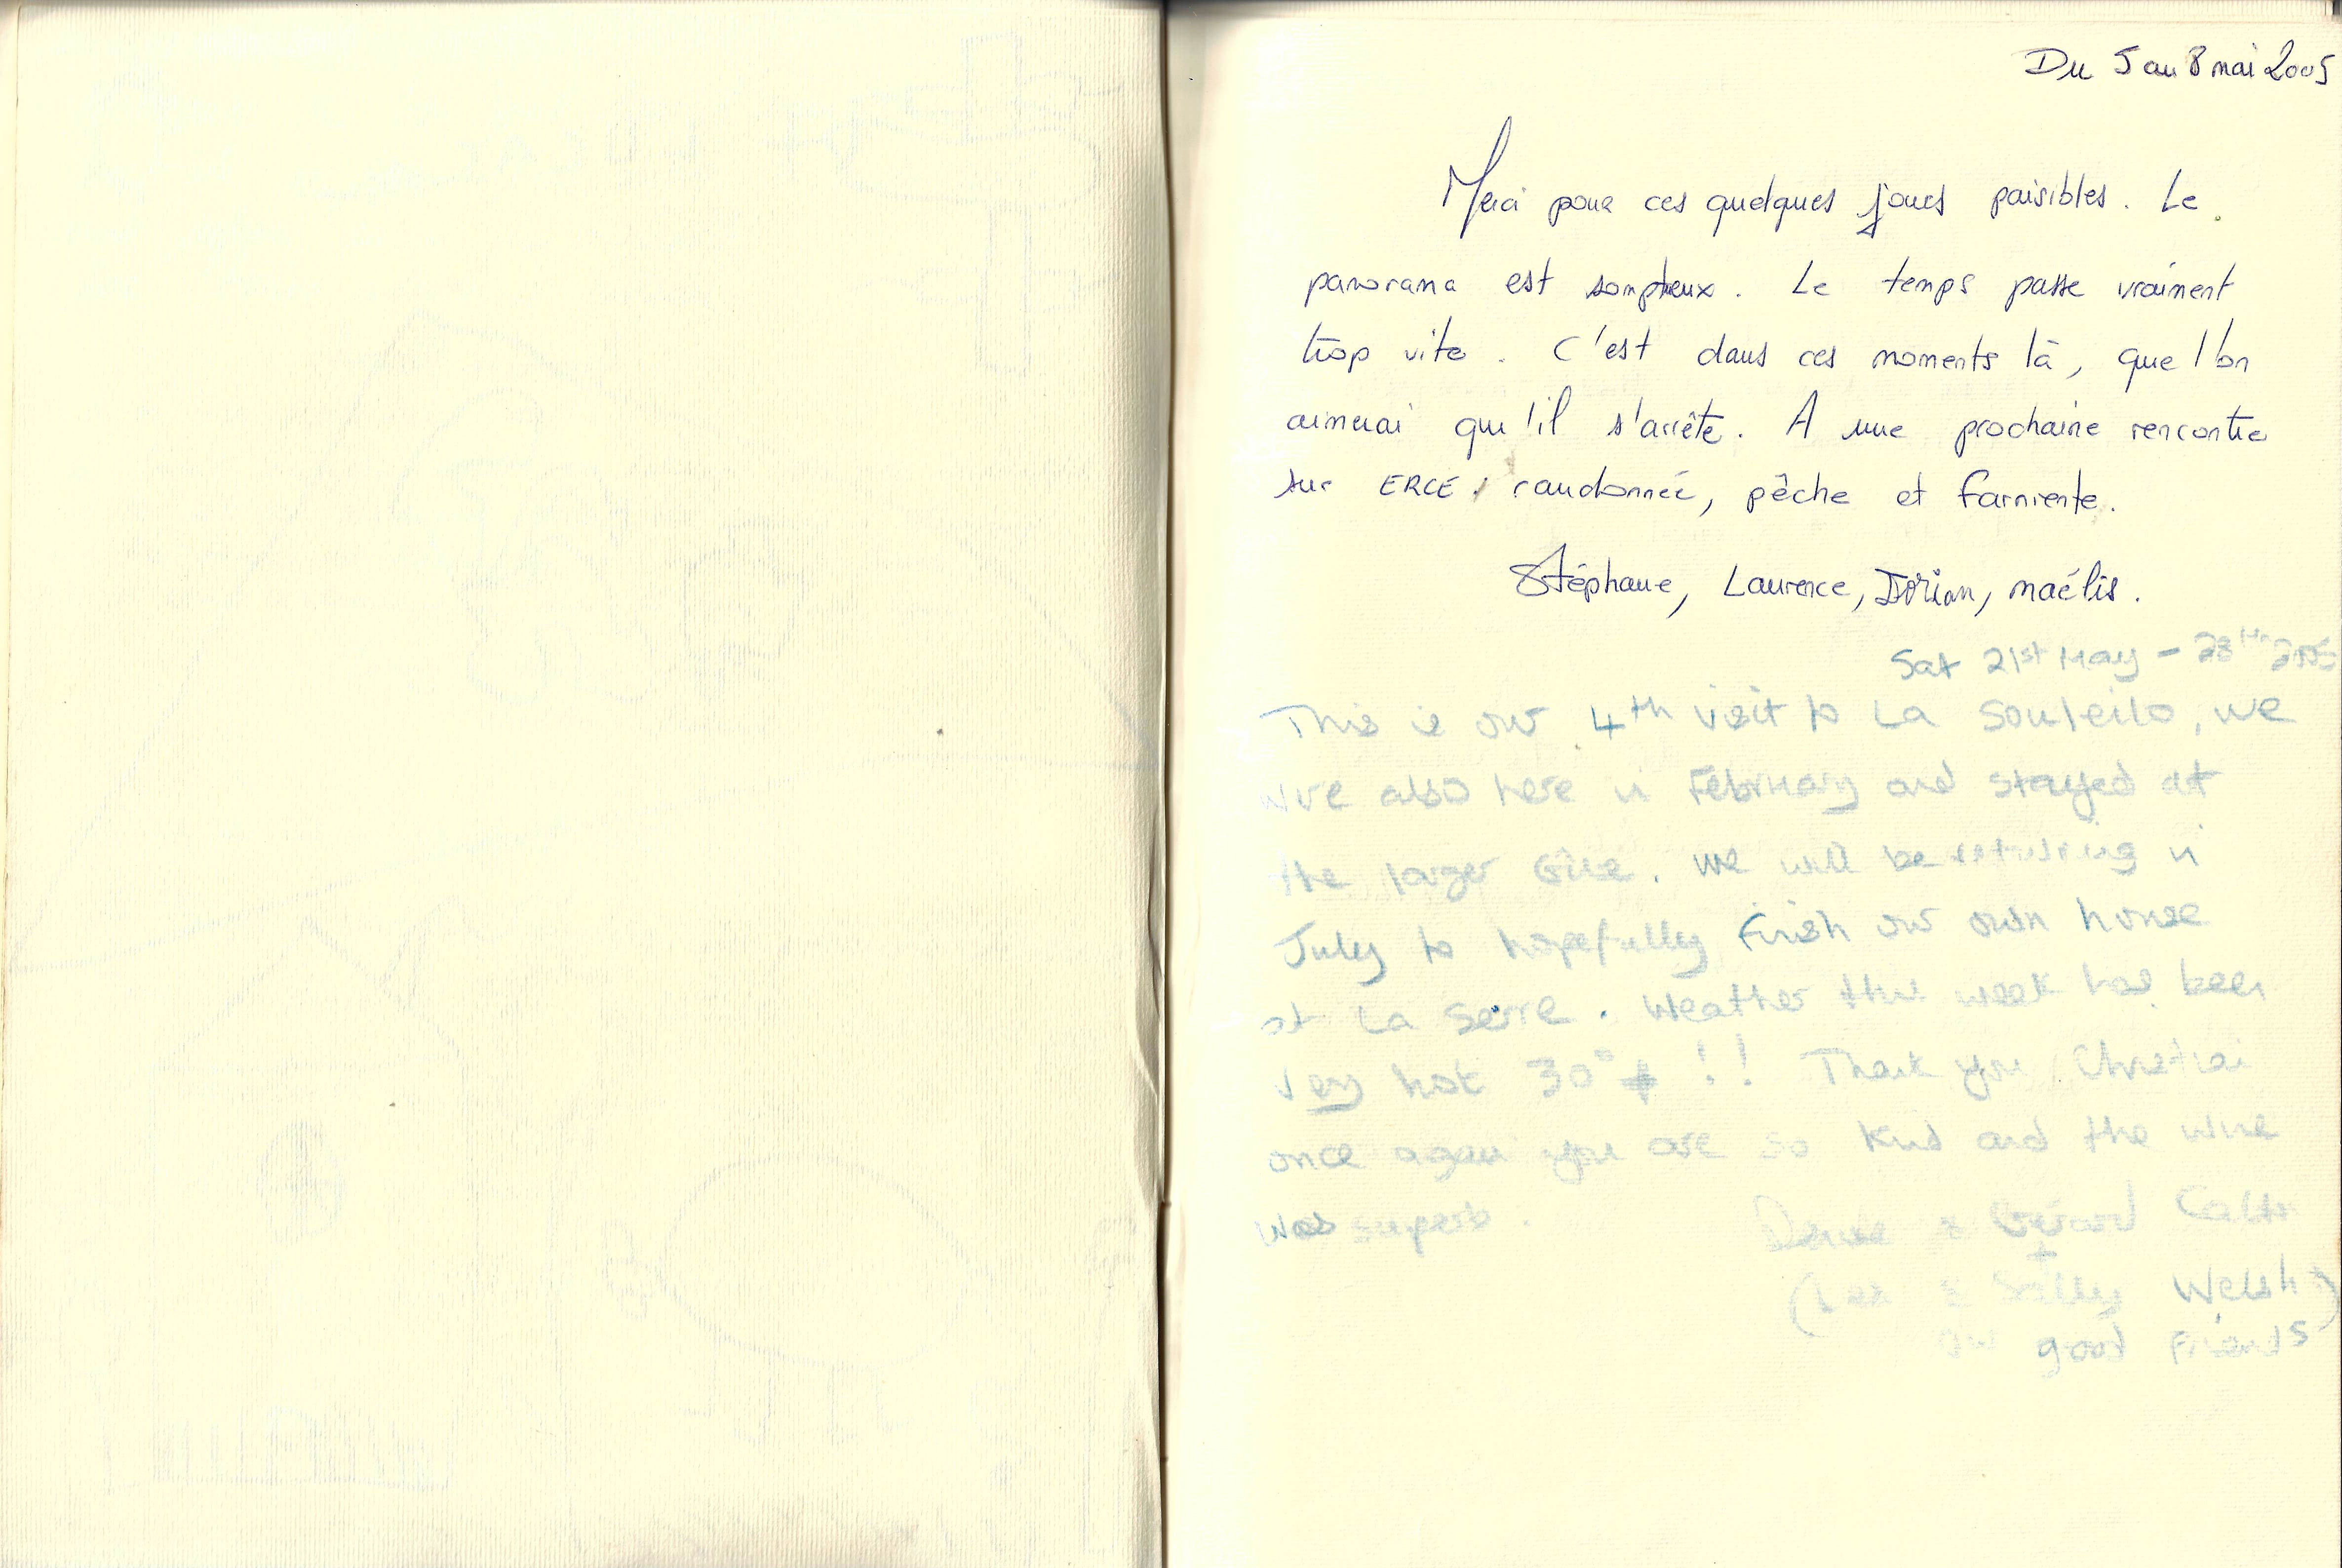 Du 5 au 8 mai 2005
Merci pour ces quelques jours paisibles. Le
panorama est somptueux. Le temps passe vraiment
trop vite. C'est dans ces moments là, que l'on
aimerai qu'il s'arrête. A une prochaine rencontre
sur ERCE, randonnée, pêche et farniente.
Stéphane, Laurence, Dorian, maélis.
Sat 21st May - 28th 2005
This is our 4th visit to La Souleilo, we
were also here in February and stayed at
the larger Gite. We will be returning in
July to hopefully finish our own house
at La Serre. Weather this week has been
very hot 30° !! Thank you
once again you are so kind and the wine
was superb. & Gerard
+
(Lee & Sally Welsh)
our good Friends